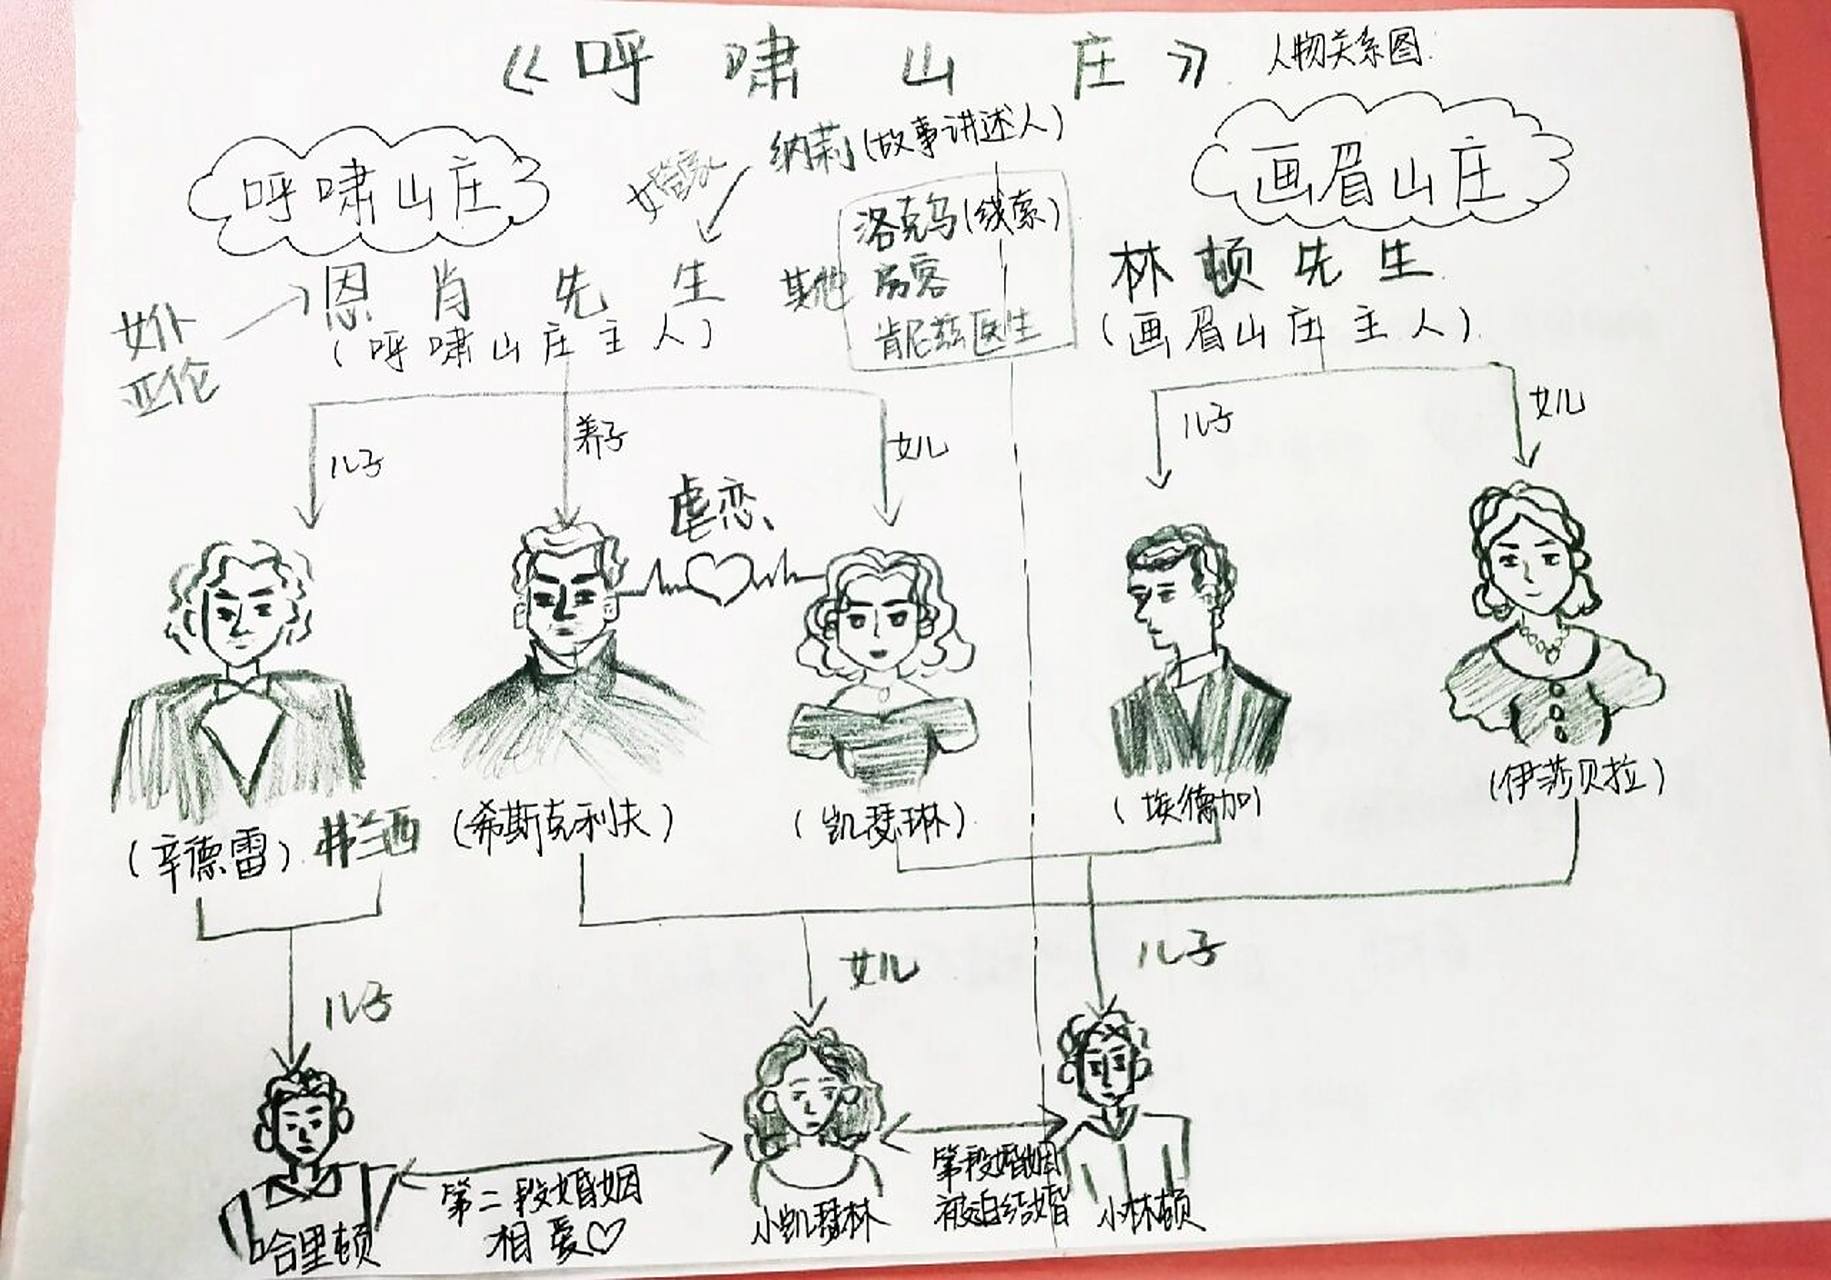 《呼啸山庄》人物关系图
呼啸山庄
女管家
纳莉(故事讲述人)
画眉山庄
女仆
亚伦
恩肖先生
(呼啸山庄主人)
其他
洛克乌(线索)
房客
肯尼兹医生
林顿先生
(画眉山庄主人)
儿子
养子
女儿
儿子
女儿
虐恋
(辛德雷)
弗兰西
(希斯克利夫)
(凯瑟琳)
(埃德加)
(伊莎贝拉)
儿子
女儿
儿子
哈里顿
第二段婚姻
相爱♡
小凯瑟林
第一段婚姻
被迫结婚
小林顿